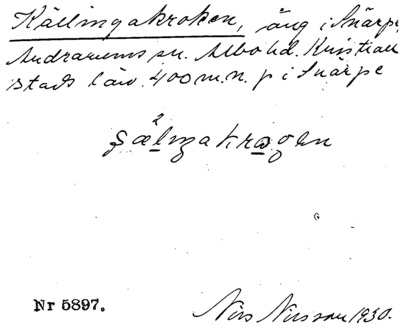 Källingakroken, äng i Snärpe,
Andrarums sn. Albo hd. Kristian
stads län. 400 m. n. p i Snärpe
ʂälŋakrogen
Nr 5897.
Nils Nilsson 1930.